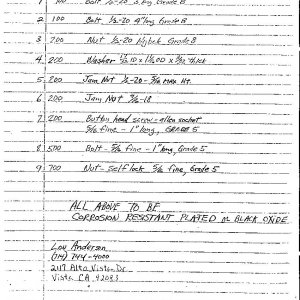 1 100 Bolt 1/2-20 Grade 8
2 100 Bolt 1/2-20 4" long Grade 8
3 200 Nut 1/2-20 Grade 8
4 200 Washer 1/2 ID x OD x 3/32 thick
5 200 Jam Nut 1/2-20 - 5/16 MAX Ht.
6 200 Jam Nut 5/16-18
7 200 Button head screw - allen socket
5/16 fine - 1" long, GRADE 5
8 500 Bolt - 5/16 fine - 1" long, Grade 5
9 700 Nut - Self lock 5/16 fine, Grade 5
ALL ABOVE TO BE
CORROSION RESISTANT PLATED or BLACK OXIDE
Lou Anderson
(714) 744-4000
2117 Alta Vista Dr
Vista CA 92083